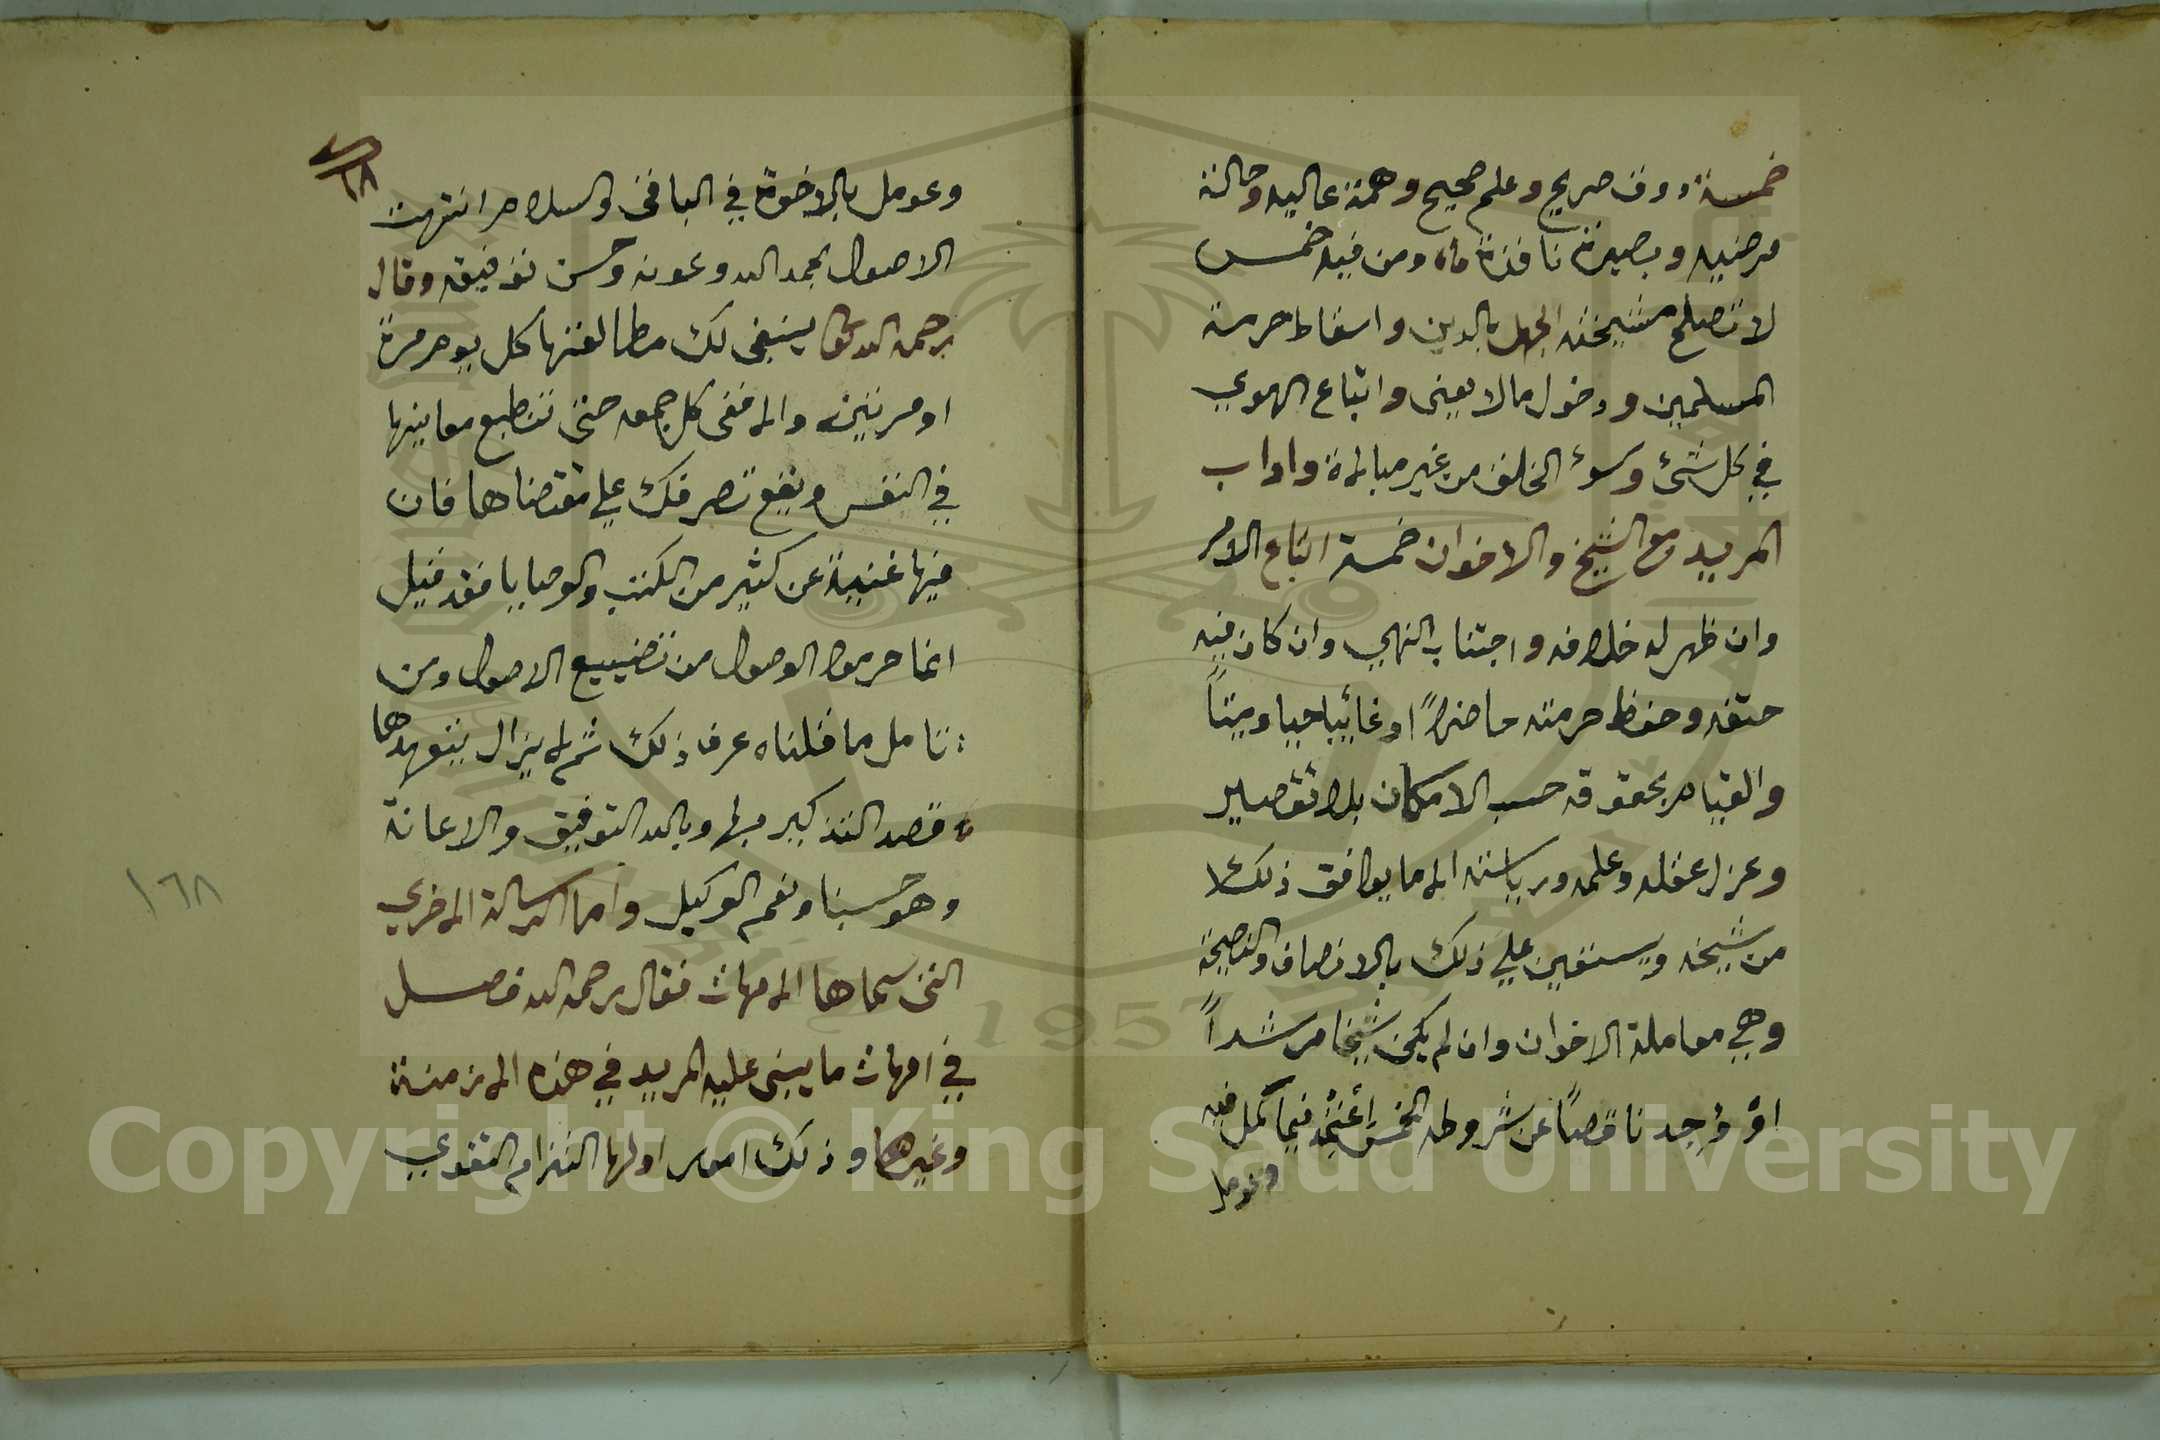 خمسة ذوق صريح وعلم صحيح وهمة عاليه وحالة
مرضيه وبصيرة نافذة ومن فيه خمس
لا تصلح مشيخته الجهل بالدين واسقاط حرمة
المسلمين ودخول مالا يعنى واتباع الهوي
في كل شئ وسوء الخلق من غير مبالاة واداب
المريد مع الشيخ والاخوان خمسة اتباع الامر
وان ظهر له خلافه واجتناب النهي وان كان فيه
حتفه وحفظ حرمته حاضراً او غائبا حيا وميتاً
والقيام بحقوقه حسب الامكان بلا تقصير
وعزل عقله وعلمه ورياسته الا ما يوافق ذلك
من شيخه ويستعين علي ذلك بالانصاف والنصيحة
وهي معاملة الاخوان وان لم يكن شيخا مرشداً
اوْ وُجِد ناقصاً عن شروطه الخمس أعتُمِد فيما كمل فيه
وعومل
١٦٨
وعومل بالاخوة في الباقى والسلام انتهت
الاصول بحمد الله وعونه وحسن توفيقه وقال
رحمه الله تعالى ينبغى لك مطالعتها كل يوم مرة
او مرتين والا ففى كل جمعه حتى تنطبع معانيها
في النفس ويقع تصرفك علي مقتضاها فان
فيها غنية عن كثير من الكتب والوصايا فقد قيل
انما حرموا الوصول من تضييع الاصول ومن
تامل ما قلناه عرف ذلك ثم لا يزال يتعهدها
قصد التذكير بها وبالله التوفيق والاعانة
وهو حسبنا ونعم الوكيل واما الرسالة الاخري
التى سماها الامهات فقال رحمه الله فصل
في امهات ما يبنى عليه المريد في هذه الازمنة
وغيرها وذلك امور اولها التزام التقوي
١٦٨
1957
Copyright © King Saud University